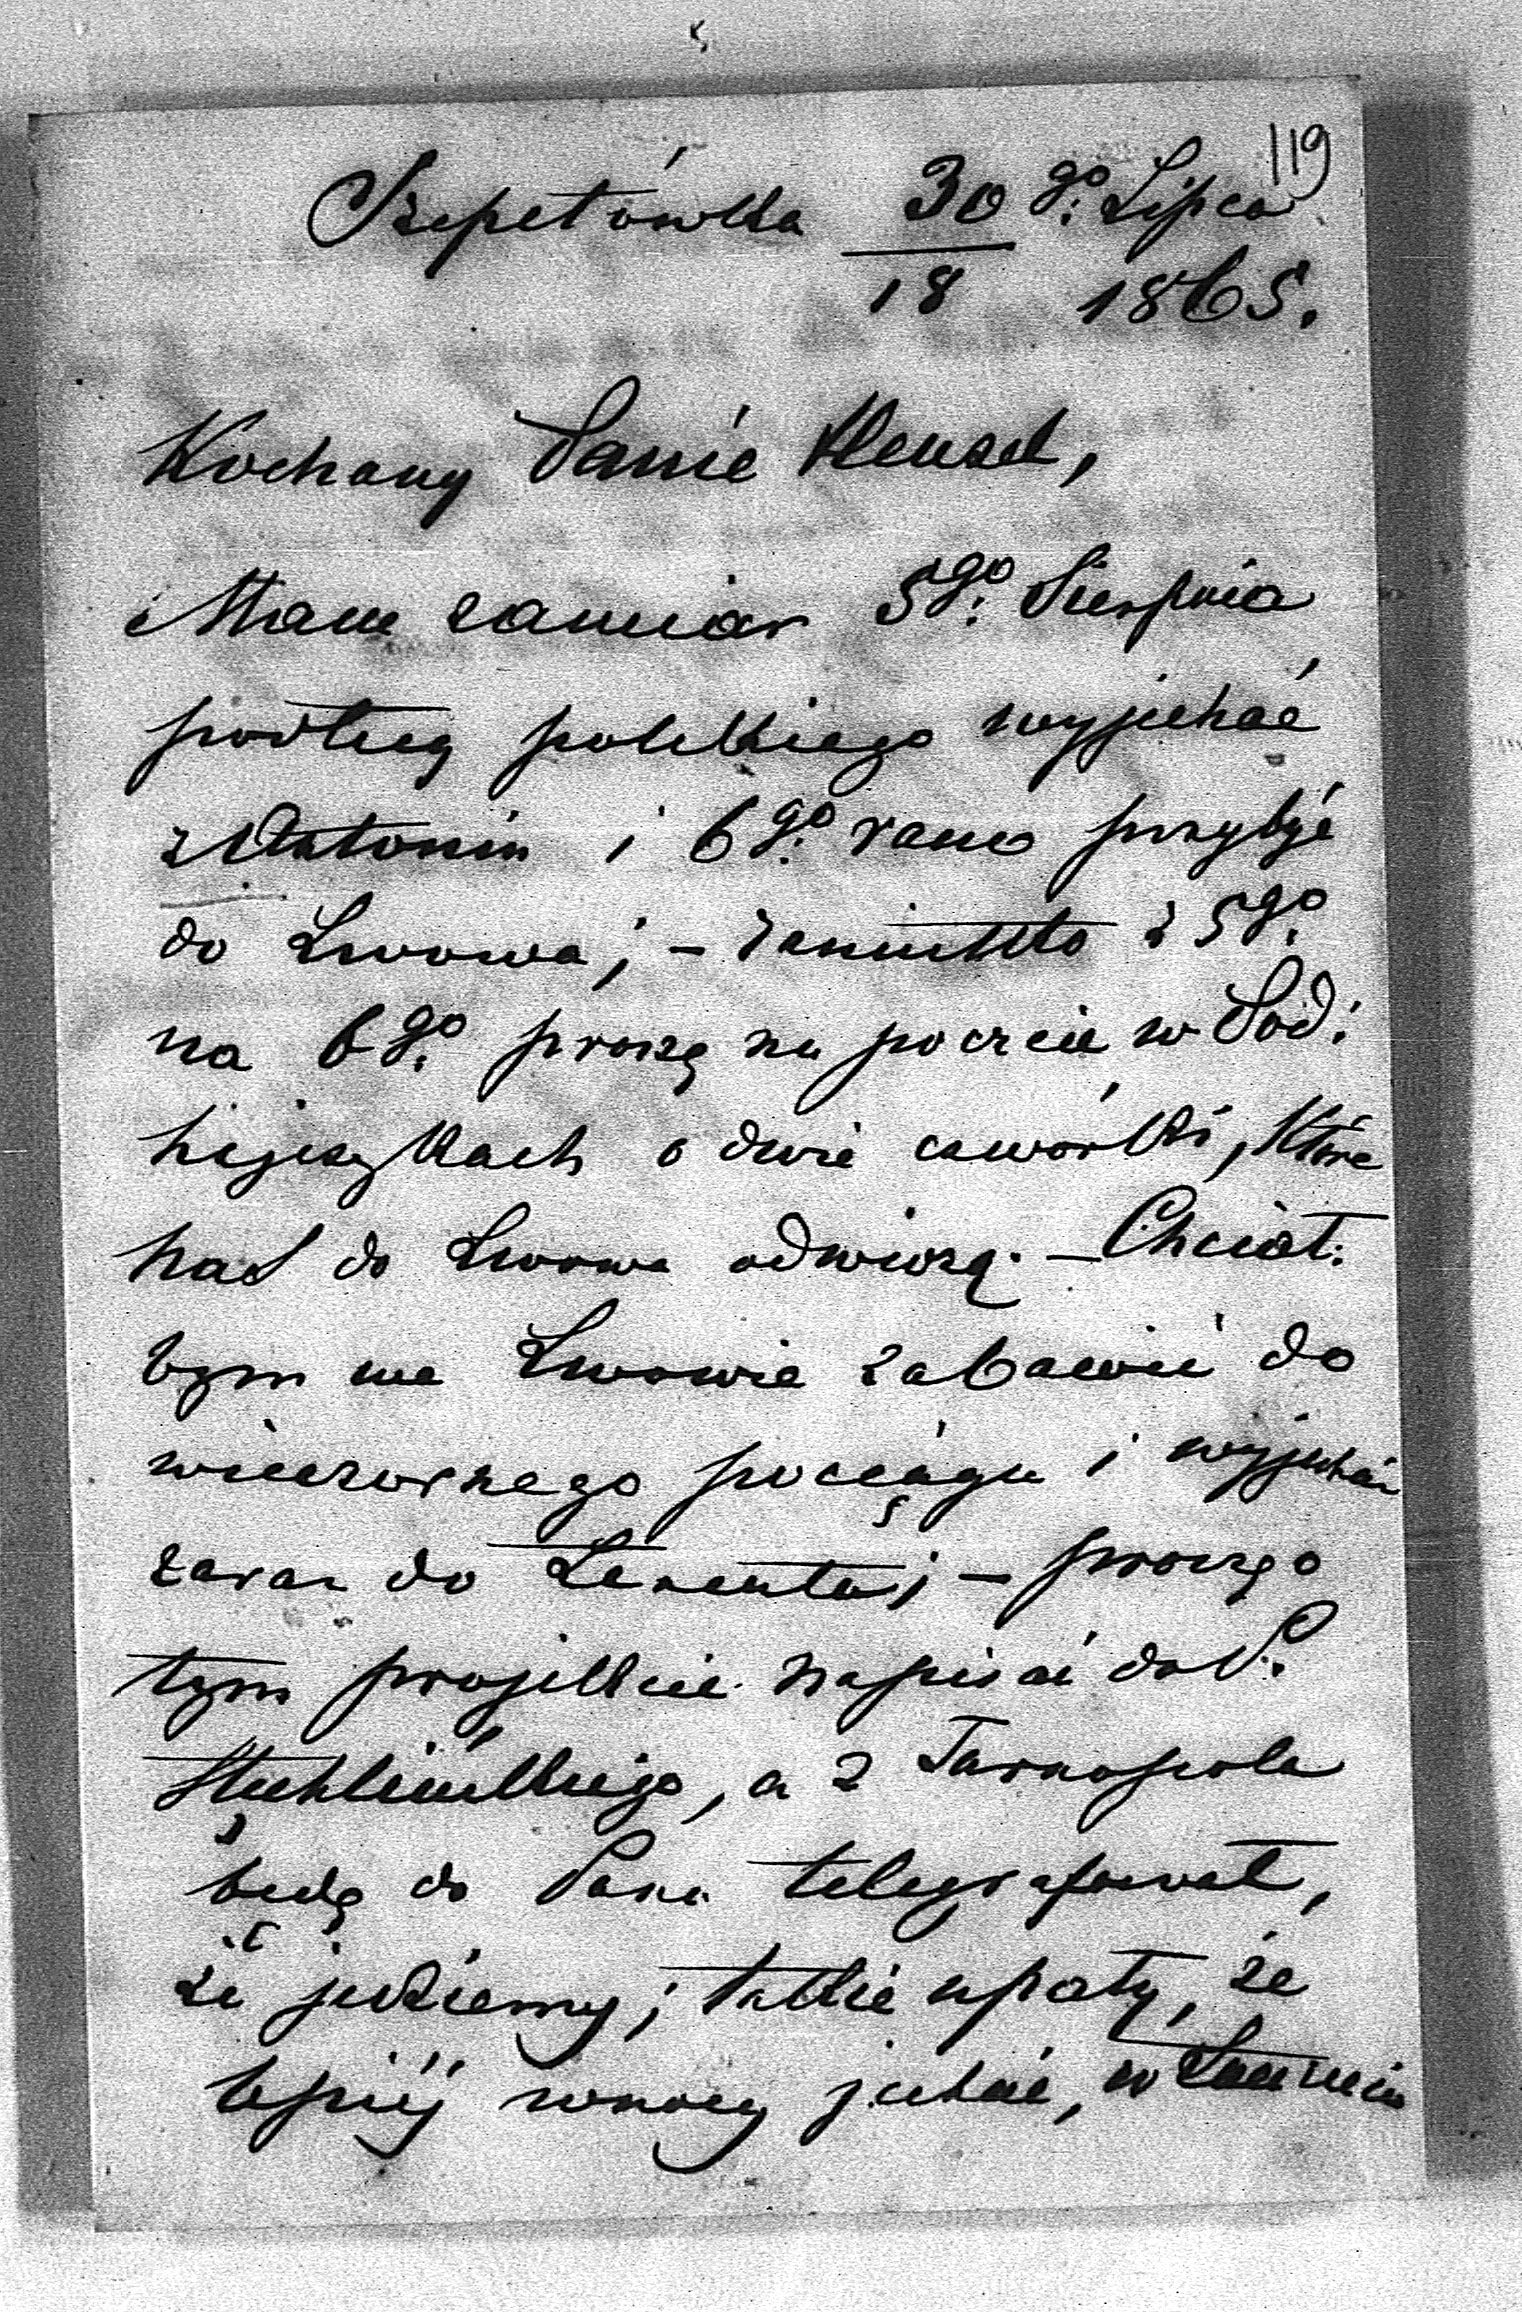 119
Szepetówka 30 go. Lipca
18 1865.
Kochany Panie Hensel,
Mam zamiar 5go. Sierpnia
podług polskiego wyjechać
z Antonin i 6go. rano przybyć
do Lwowa; – z 5go.
na 6go. proszę na poczcie w Pod:
hajczykach o dwie czwórki, które
nas do Lwowa odwiozą. – Chciał:
bym we Lwowie zabawić do
wieczornego pociągu i wyjechać
zaraz do Łańcuta; – proszę o
tym projekcie napisać do P.
a z Tarnopola
będę do Pana telegrafował,
że jedziemy; takie upały, że
lepiej w nocy jechać, w